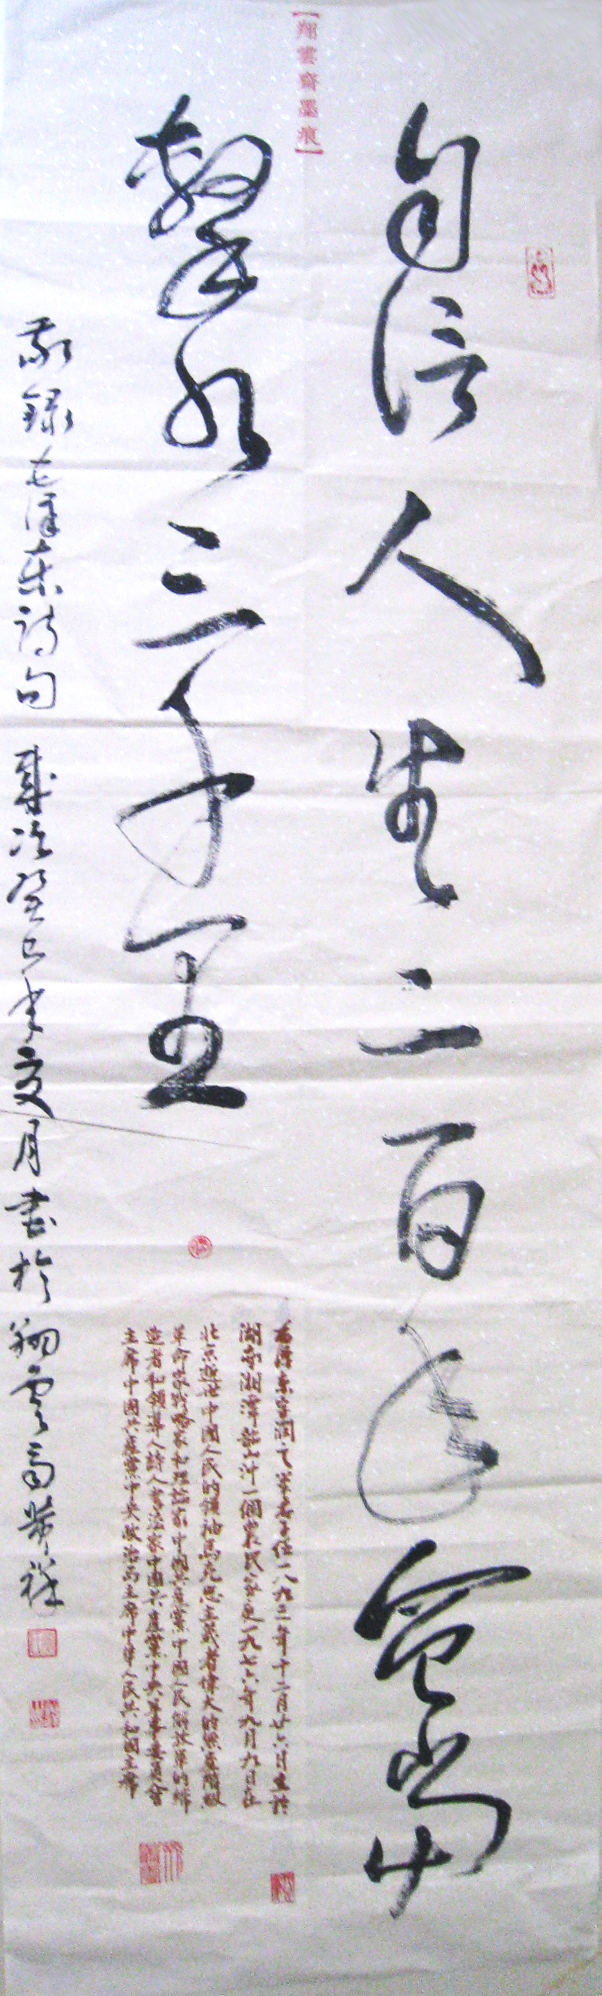 【翔雲齋墨痕】
自信人生二百年會當
擊水三千里
敬録毛澤東詩句 歲次癸巳年夏月書於翔雲齋 榮祥
毛澤東字潤之筆名子任一八九三年十二月廿六日生於
湖南湘潭韶山沖一個農民家庭一九七六年九月九日在
北京逝世中國人民的領袖馬克思主義者偉大的無產階級
革命家戰略家和理論家中國共產黨中國人民解放軍的締
造者和領導人詩人書法家中國共產黨中央軍事委員會
主席中國共產黨中央政治局主席中華人民共和國主席